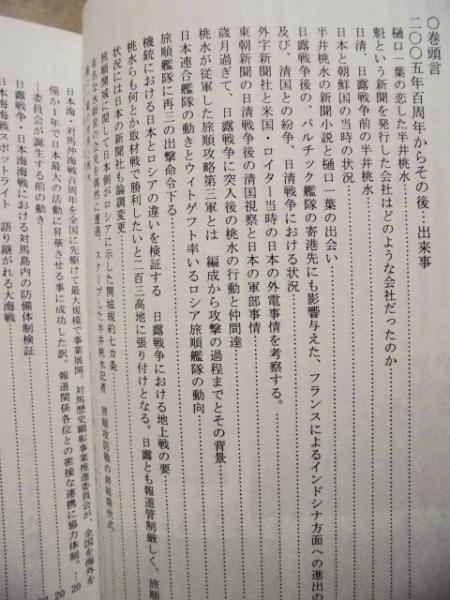 〇巻頭言
二〇〇五年百周年からその後…出来事
樋口一葉の恋した半井桃水
魁という新聞を発行した会社はどのような会社だったのか
日清、日露戦争前の半井桃水
日本と朝鮮国の当時の状況
半井桃水の新聞小説と樋口一葉の出会い
日露戦争後の、バルチック艦隊の寄港先にも影響与えた、フランスによるインドシナ方面への進出の
及び、清国との紛争、日清戦争における状況
外字新聞社と米国・ロイター当時の日本の外電事情を考察する。
東朝新聞の日清戦争後の清国視察と日本の軍部事情
歳月過ぎて、日露戦争に突入後の桃水の行動と仲間達
桃水が従軍した旅順攻略第三軍とは 編成から攻撃の過程までとその背景
日本連合艦隊の動きとウィトゲフト率いるロシア旅順艦隊の動向
旅順艦隊に再三の出撃命令下る
機銃における日本とロシアの違いを検証する 日露戦争における地上戦の要
桃水らも何とか取材戦で勝利したいと二百三高地に張り付けとなる。日露とも報道管制厳しく、旅順
状況には日本の新聞社も論調変更
旅順開城に関して日本側がロシアに示した開城規約七カ条
日本海・対馬沖海戦百周年を全国に先駆けて最大規模で事業展開。対馬歴史顕彰事業推進委員会が、全国を海外を
僅か1年で日本最大の活動に昇華させる事に成功した訳。報道関係各位との密接な連携に協力体制。
―委員会が誕生する前の動き―
日露戦争・日本海海戦における対馬島内の防備体制検証
日本海海戦スポットライト 語り継がれる大海戦